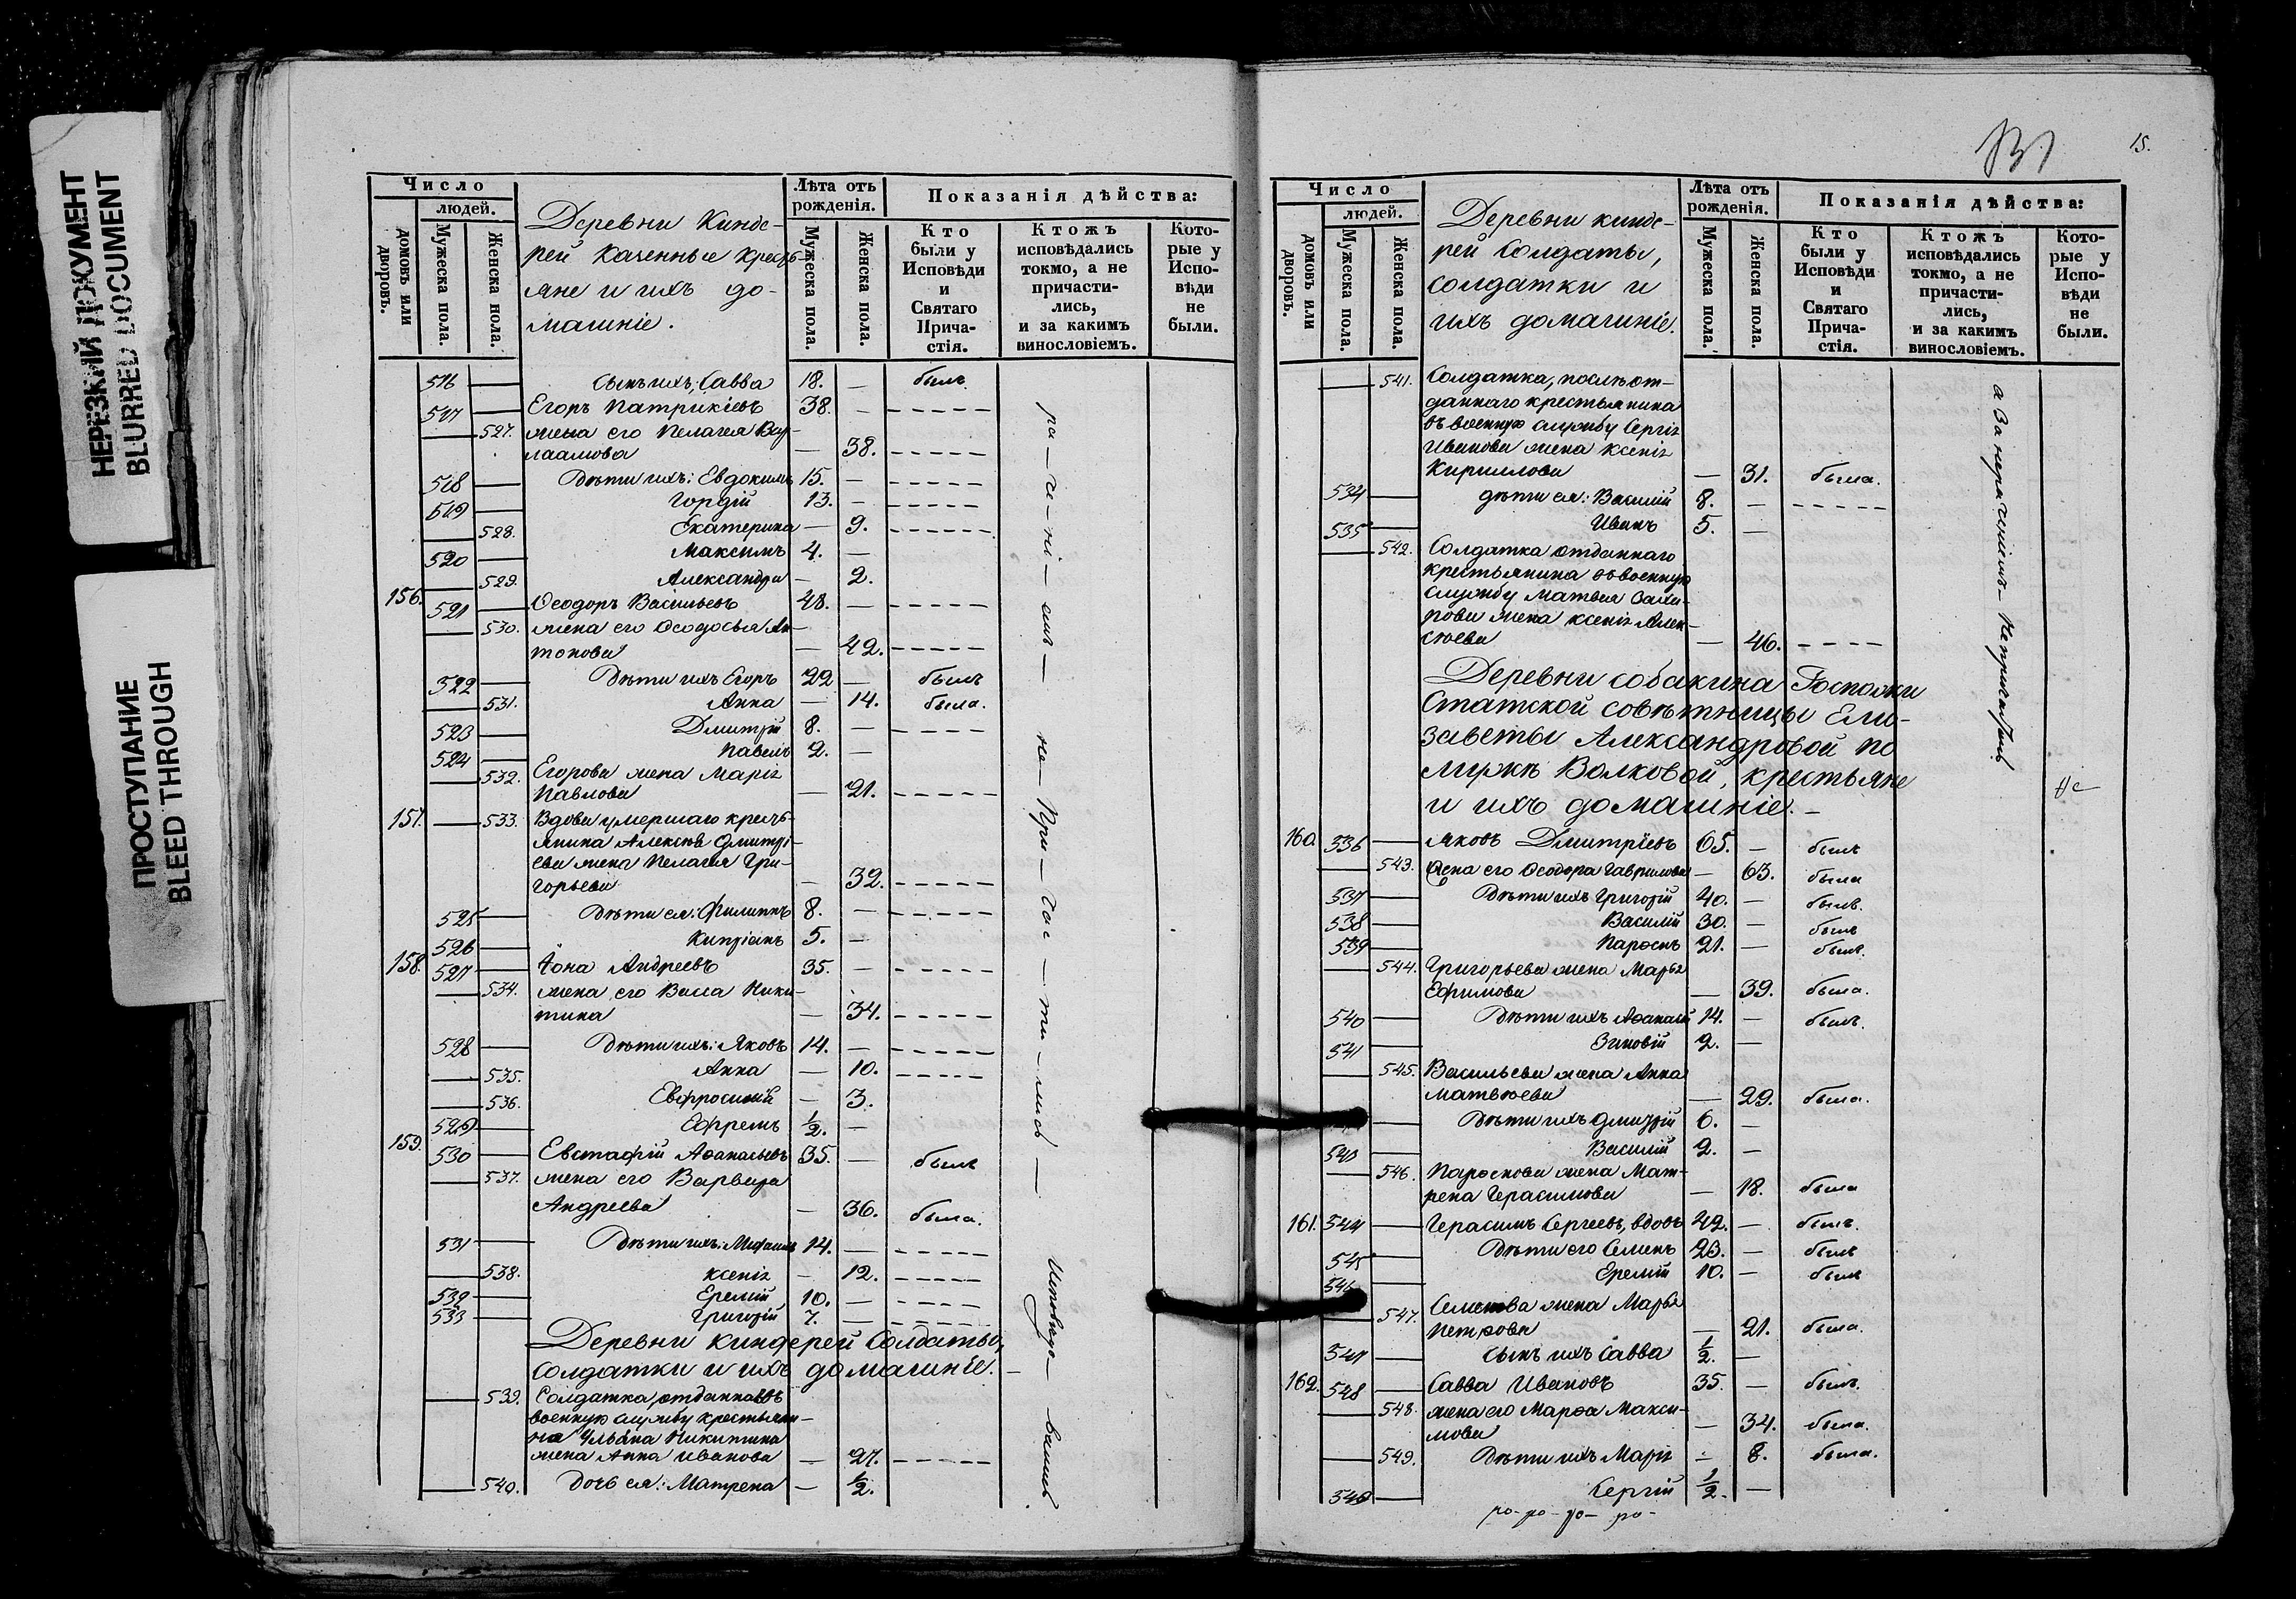 НЕРЕЗКИЙ ДОКУМЕНТ
BLURRED DOCUMENT
ПРОСТУПАНИЕ
BLEED THROUGH
Число
людей.
домовъ или дворовъ.
Мужеска пола.
Женска пола.
Деревни Кинде-
рей Казенные Кресть-
яне и ихъ до-
машніе.
Лѣта отъ рожденія.
Мужеска пола.
Женска пола.
Показанія дѣйства:
Кто были у Исповѣди и Святаго Прича-стія.
Ктожъ исповѣдались токмо, а не причасти-лись, и за какимъ винословіемъ.
Кото-рые у Испо-вѣди не были.
516 — сынъ ихъ, Савва 18. — былъ
517 — Егоръ Патрикіевъ 38. — - - - - -
— 527. жена его Пелагея Вар-
лаамова — 38. - - - - -
518 — Дѣти ихъ: Евдокимъ 15. — - - - - -
519 — Гордій 13. — - - - - -
— 528. Екатерина — 9. - - - - -
520 — Максимъ 4. —
— 529. Александра — 2.
156. 521 — Ѳеодоръ Васильевъ 48. — - - - - -
— 530. жена его Ѳеодосья Ан-
тонова — 42. - - - - -
522 — Дѣти ихъ Егоръ 22 — былъ
— 531. Анна — 14. была.
523 — Дмитрій 8. — - - - - -
524 — Павелъ 2. —
— 532. Егорова жена Марія
Павлова — 21. - - - - -
157. — 533. Вдова умершаго кресть-
янина Алексѣя Дмитрі-
ева жена Пелагея Гри-
горьева — 32. - - - - -
525 — Дѣти ея: Филиппъ 8. — - - - - -
526 — Кипріанъ 5. —
158. 527 — Іона Андреевъ 35. — - - - - -
— 534. жена его Васса Ники-
тина — 34. - - - - -
528 — Дѣти ихъ: Яковъ 14. — - - - - -
— 535. Анна — 10. - - - - -
— 536. Евфросинія — 3.
529 — Ефремъ ½. —
159. 530 — Евстафій Аѳанасьевъ 35. — былъ
— 537. жена его Варвара
Андреева — 36. была.
531 — Дѣти ихъ: Михаилъ 14. — - - - - -
— 538. Ксенія — 12. - - - - -
532 — Еремій 10. — - - - - -
533 — Григорій 7. — - - - - -
Деревни Киндерей Солдаты,
солдатки и ихъ домашніе. —
— 539. Солдатка, отданнаго въ
военную службу крестьяни-
на Ульяна Никитина
жена Анна Иванова — 27. - - - - -
— 540. Дочь ея: Матрена — ½.
ра — че — ні — емъ — не — При — час — ти — лись —
15.
Число
людей.
домовъ или дворовъ.
Мужеска пола.
Женска пола.
Деревни Кинде-
рей Солдаты,
солдатки и
ихъ домашніе.
Лѣта отъ рожденія.
Мужеска пола.
Женска пола.
Показанія дѣйства:
Кто были у Исповѣди и Святаго Прича-стія.
Ктожъ исповѣдались токмо, а не причасти-лись, и за какимъ винословіемъ.
Кото-рые у Испо-вѣди не были.
— 541. Солдатка, послѣ от-
даннаго крестьянина
въ военную службу Сергія
Иванова жена Ксенія
Кириллова — 31. была.
534 — дѣти ея: Василій 8. — - - - - -
535 — Иванъ 5. —
— 542. Солдатка отданнаго
крестьянина въ военную
службу Матвея Заха-
рова жена Ксенія Алек-
сѣева — 46. - - - -
Деревни Собакина Госпожи
Статской совѣтницы Ели-
заветы Александровой по
мужѣ Волковой, крестьяне
и ихъ домашніе. —
160. 536 — Яковъ Дмитріевъ 65. — былъ
— 543. Жена его Ѳеодора Гаврилова — 63. была
537 — Дѣти ихъ Григорій 40. — былъ.
538 — Василій 30. — былъ
539 — Парѳенъ 21. — былъ.
— 544. Григорьева жена Марья
Ефимова — 39. была.
540 — Дѣти ихъ Аѳанасій 14. — былъ.
541 — Зиновій 2. —
— 545. Васильева жена Анна
Матвѣева — 29. была.
— Дѣти ихъ Дмитрій 6. —
543 — Василій 2. —
— 546. Парѳенова жена Мат-
рена Герасимова — 18. была
161. 544 — Герасимъ Сергеевъ, вдовъ 42. — былъ.
545 — Дѣти его Семенъ 23. — былъ
546 — Еремій 10. — былъ
— 547. Семенова жена Марья
Петрова — 21. была.
547 — сынъ ихъ Савва ½. —
162. 548 — Савва Ивановъ 35. — былъ.
— 548. жена его Марѳа Макси-
мова — 34. была.
— 549. Дѣти ихъ Марія — 8. была.
549 — Сергій ½. —